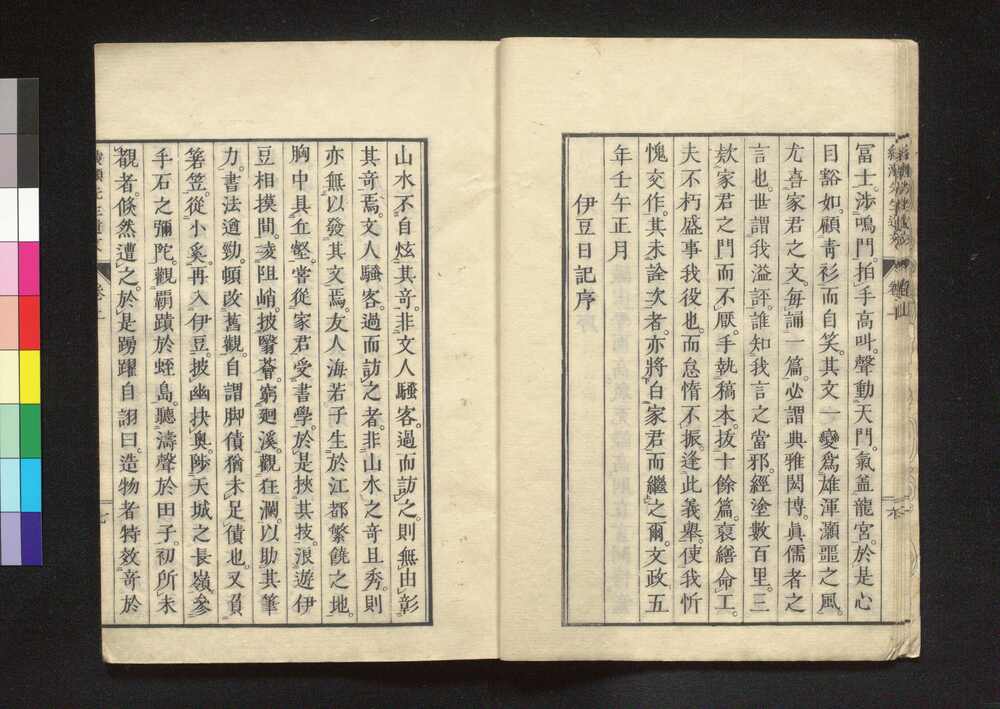 冨士。渉鳴門。拍手高叫。聲動天門。氣盖龍宮。於是心
目豁如。顧靑衫而自笑。其文一變爲雄渾灝噩之風。
尤喜家君之文。每誦一篇。必謂典雅閎博。眞儒者之
言也。世謂我溢評。誰知我言之當邪。經塗數百里。三
欸家君之門而不厭。手執稿本。拔十餘篇。裒繕命工。
夫不朽盛事我役也。而怠惰不振。逢此義擧。使我忻
愧交作。其未詮次者。亦將白家君而繼之爾。文政五
年壬午正月
伊豆日記序
山水不自炫其奇。非文人騷客。過而訪之。則無由彰
其奇焉。文人騷客。過而訪之者。非山水之奇且秀。則
亦無以發其文焉。友人海若子生於江都繁饒之地。
胸中具丘壑。嘗從家君受書學。於是挾其技。浪遊伊
豆相摸間。凌阻峭。披翳薈。窮廻溪。觀狂瀾。以助其筆
力。書法遒勁。頓改舊觀。自謂脚債猶未足償也。又負
箬笠。從小奚。再入伊豆。披幽抉奧。陟天城之長嶺。參
手石之彌陀。觀覇蹟於蛭島。聽濤聲於田子。初所未
觀者。倏然遭之。於是踴躍自詡曰。造物者特效奇於